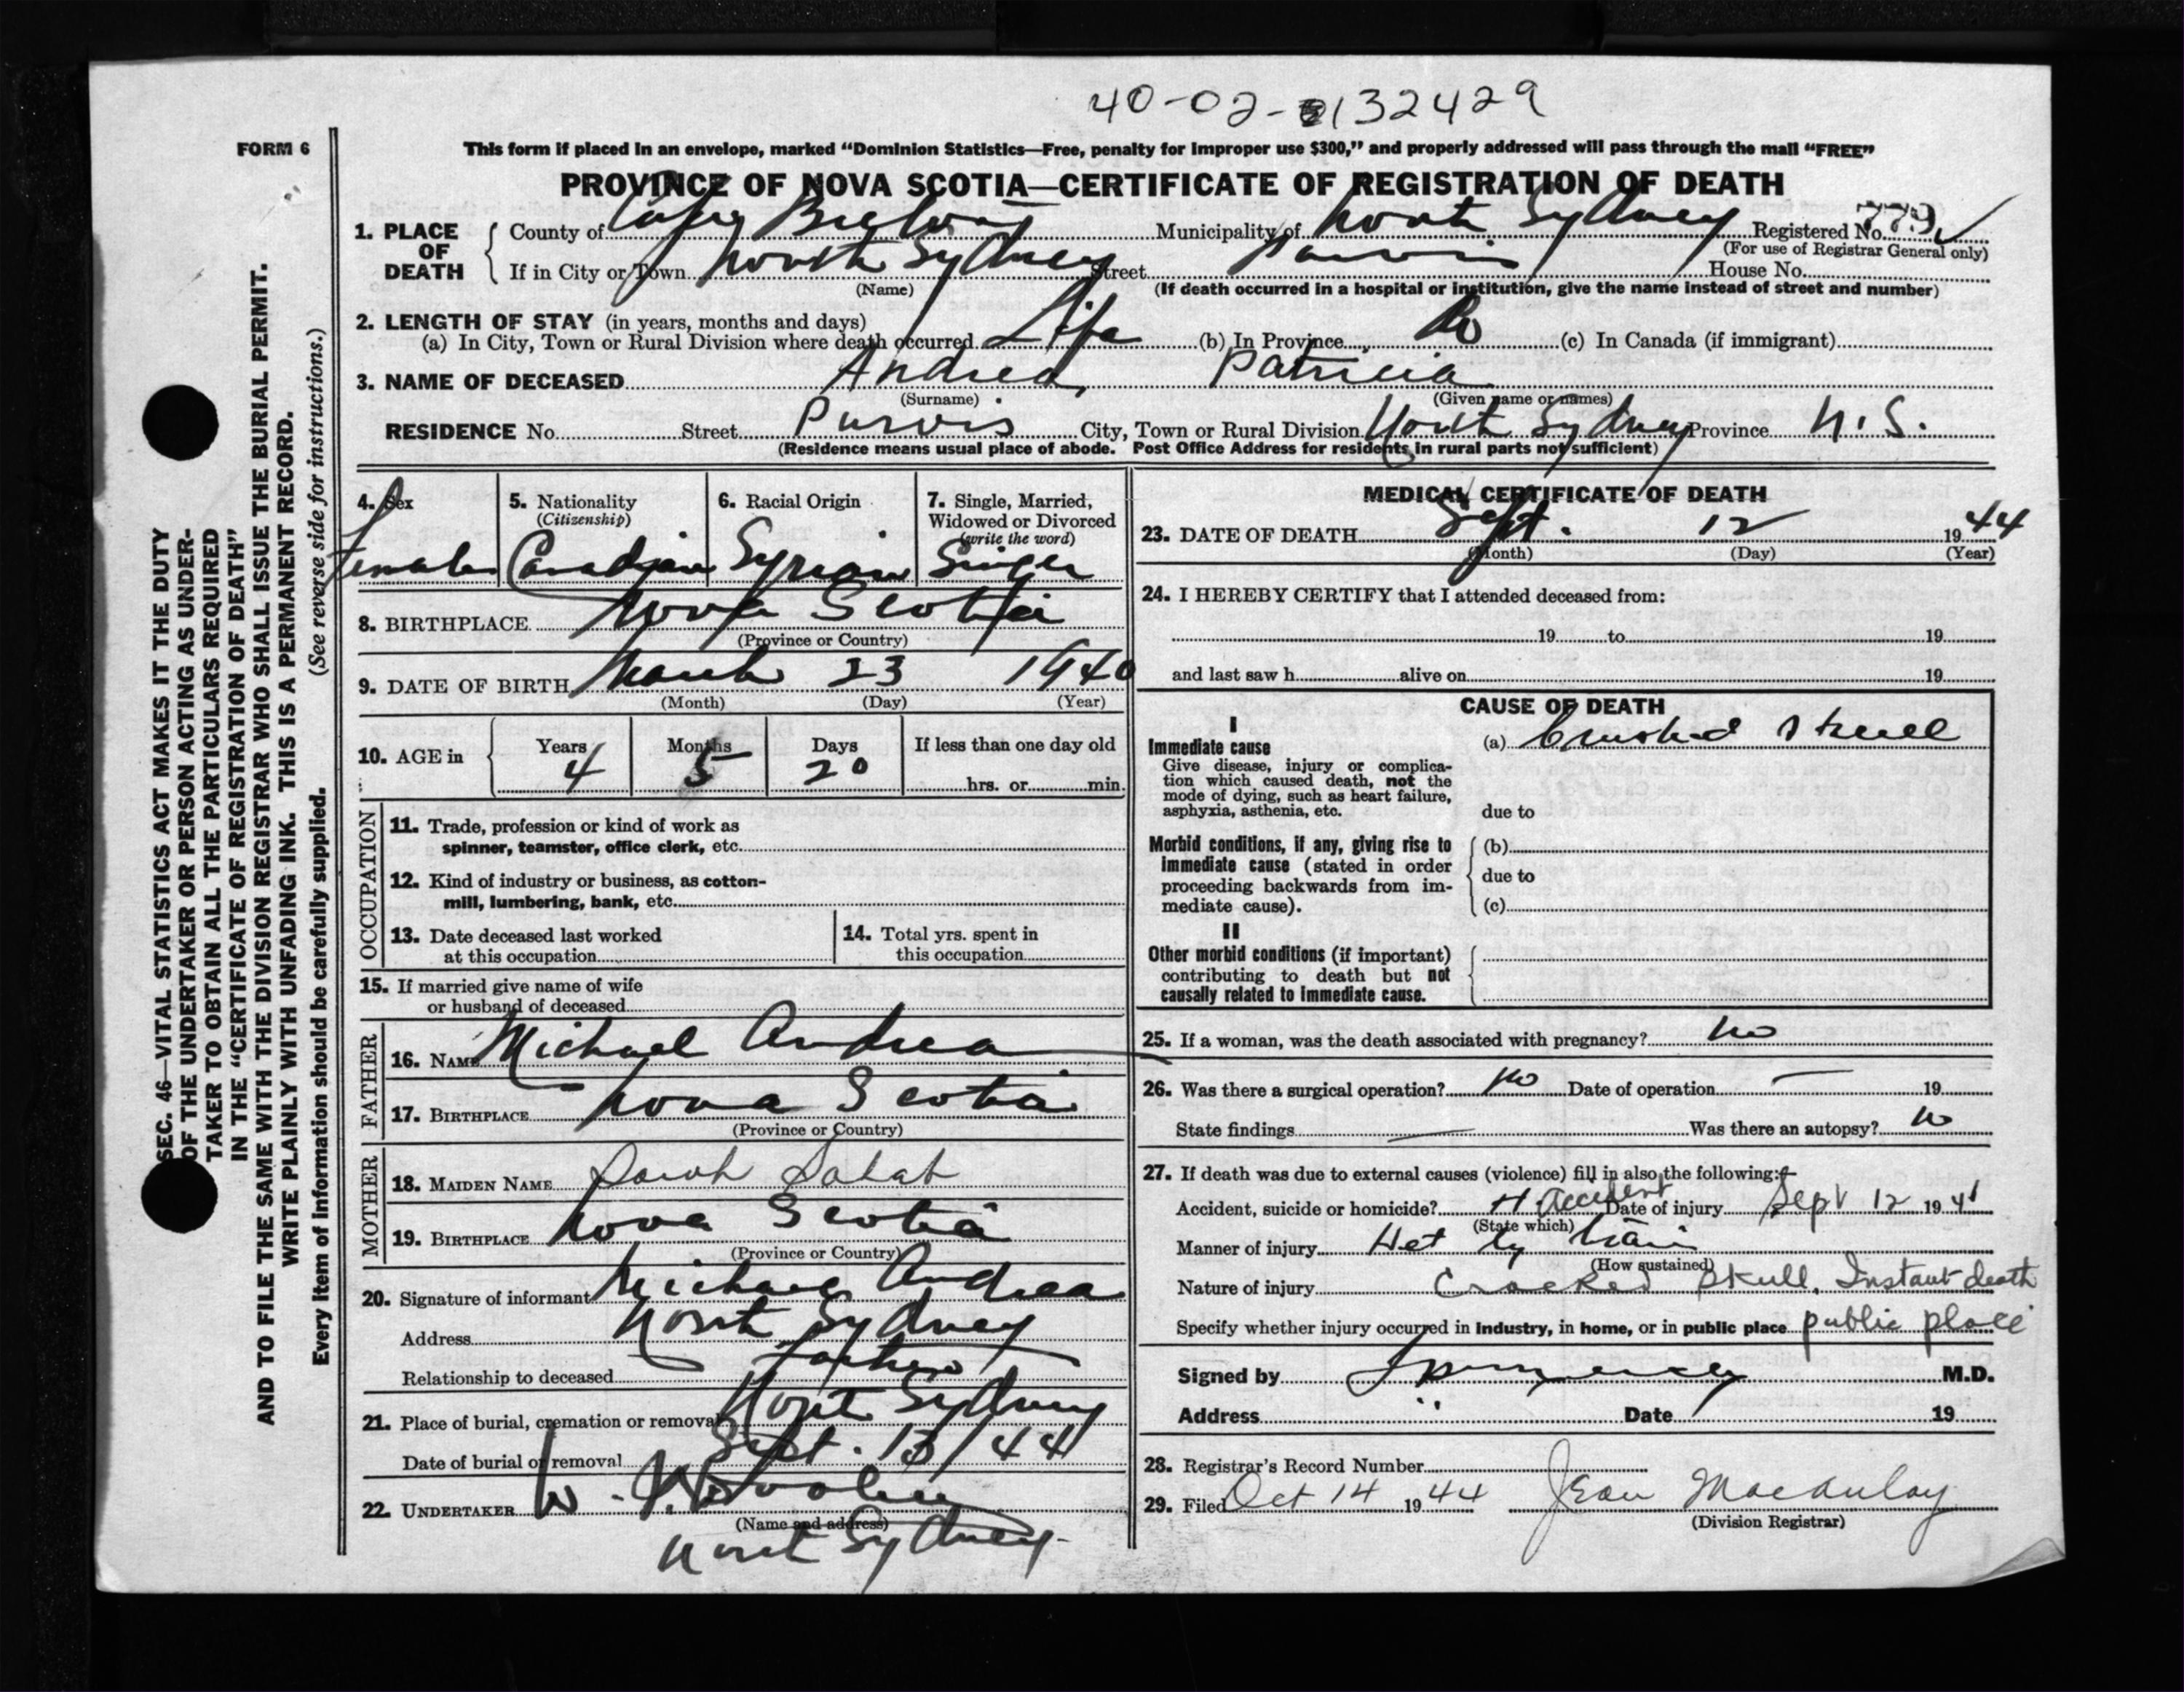 40-02-2132429
FORM 6
This form if placed in an envelope, marked “Dominion Statistics—Free, penalty for improper use $300,” and properly addressed will pass through the mail “FREE”
PROVINCE OF NOVA SCOTIA—CERTIFICATE OF REGISTRATION OF DEATH
1. PLACE OF DEATH County of Cape Breton Municipality of North Sydney Registered No. 779
(For use of Registrar General only)
If in City or Town North Sydney Street Purvis House No.
(Name) (If death occurred in a hospital or institution, give the name instead of street and number)
2. LENGTH OF STAY (in years, months and days)
(a) In City, Town or Rural Division where death occurred Life (b) In Province Do (c) In Canada (if immigrant)
3. NAME OF DECEASED Andrea, Patricia
(Surname) (Given name or names)
RESIDENCE No. Street Purvis City, Town or Rural Division North Sydney Province N.S.
(Residence means usual place of abode. Post Office Address for residents in rural parts not sufficient)
4. Sex 5. Nationality 6. Racial Origin 7. Single, Married,
(Citizenship) Widowed or Divorced
(write the word)
Female Canadian Syrian Single
8. BIRTHPLACE Nova Scotia
(Province or Country)
9. DATE OF BIRTH March 23 1940
(Month) (Day) (Year)
10. AGE in Years Months Days If less than one day old
4 5 20 hrs. or min.
OCCUPATION
11. Trade, profession or kind of work as
spinner, teamster, office clerk, etc.
12. Kind of industry or business, as cotton-
mill, lumbering, bank, etc.
13. Date deceased last worked 14. Total yrs. spent in
at this occupation this occupation
15. If married give name of wife
or husband of deceased
FATHER
16. NAME Michael Andrea
17. BIRTHPLACE Nova Scotia
(Province or Country)
MOTHER
18. MAIDEN NAME Sarah
19. BIRTHPLACE Nova Scotia
(Province or Country)
20. Signature of informant Michael Andrea
Address North Sydney
Relationship to deceased Father
21. Place of burial, cremation or removal North Sydney
Date of burial or removal Sept. 13/44
22. UNDERTAKER W.
(Name and address)
North Sydney
MEDICAL CERTIFICATE OF DEATH
23. DATE OF DEATH Sept. 12 1944
(Month) (Day) (Year)
24. I HEREBY CERTIFY that I attended deceased from:
19 to 19
and last saw h alive on 19
CAUSE OF DEATH
I
Immediate cause (a) Crushed skull
Give disease, injury or complica-
tion which caused death, not the
mode of dying, such as heart failure,
asphyxia, asthenia, etc. due to
Morbid conditions, if any, giving rise to (b)
immediate cause (stated in order due to
proceeding backwards from im-
mediate cause). (c)
II
Other morbid conditions (if important)
contributing to death but not
causally related to immediate cause.
25. If a woman, was the death associated with pregnancy? No
26. Was there a surgical operation? No Date of operation — 19
State findings — Was there an autopsy? No
27. If death was due to external causes (violence) fill in also the following:
Accident, suicide or homicide? Accident Date of injury Sept 12 1944
(State which)
Manner of injury Hit by train
(How sustained)
Nature of injury Crocked skull. Instant death
Specify whether injury occurred in industry, in home, or in public place public place
Signed by M.D.
Address Date 19
28. Registrar's Record Number
29. Filed Oct 14 1944 Jean Macaulay
(Division Registrar)
SEC. 46—VITAL STATISTICS ACT MAKES IT THE DUTY
OF THE UNDERTAKER OR PERSON ACTING AS UNDER-
TAKER TO OBTAIN ALL THE PARTICULARS REQUIRED
IN THE “CERTIFICATE OF REGISTRATION OF DEATH”
AND TO FILE THE SAME WITH THE DIVISION REGISTRAR WHO SHALL ISSUE THE BURIAL PERMIT.
WRITE PLAINLY WITH UNFADING INK. THIS IS A PERMANENT RECORD.
Every item of information should be carefully supplied. (See reverse side for instructions.)